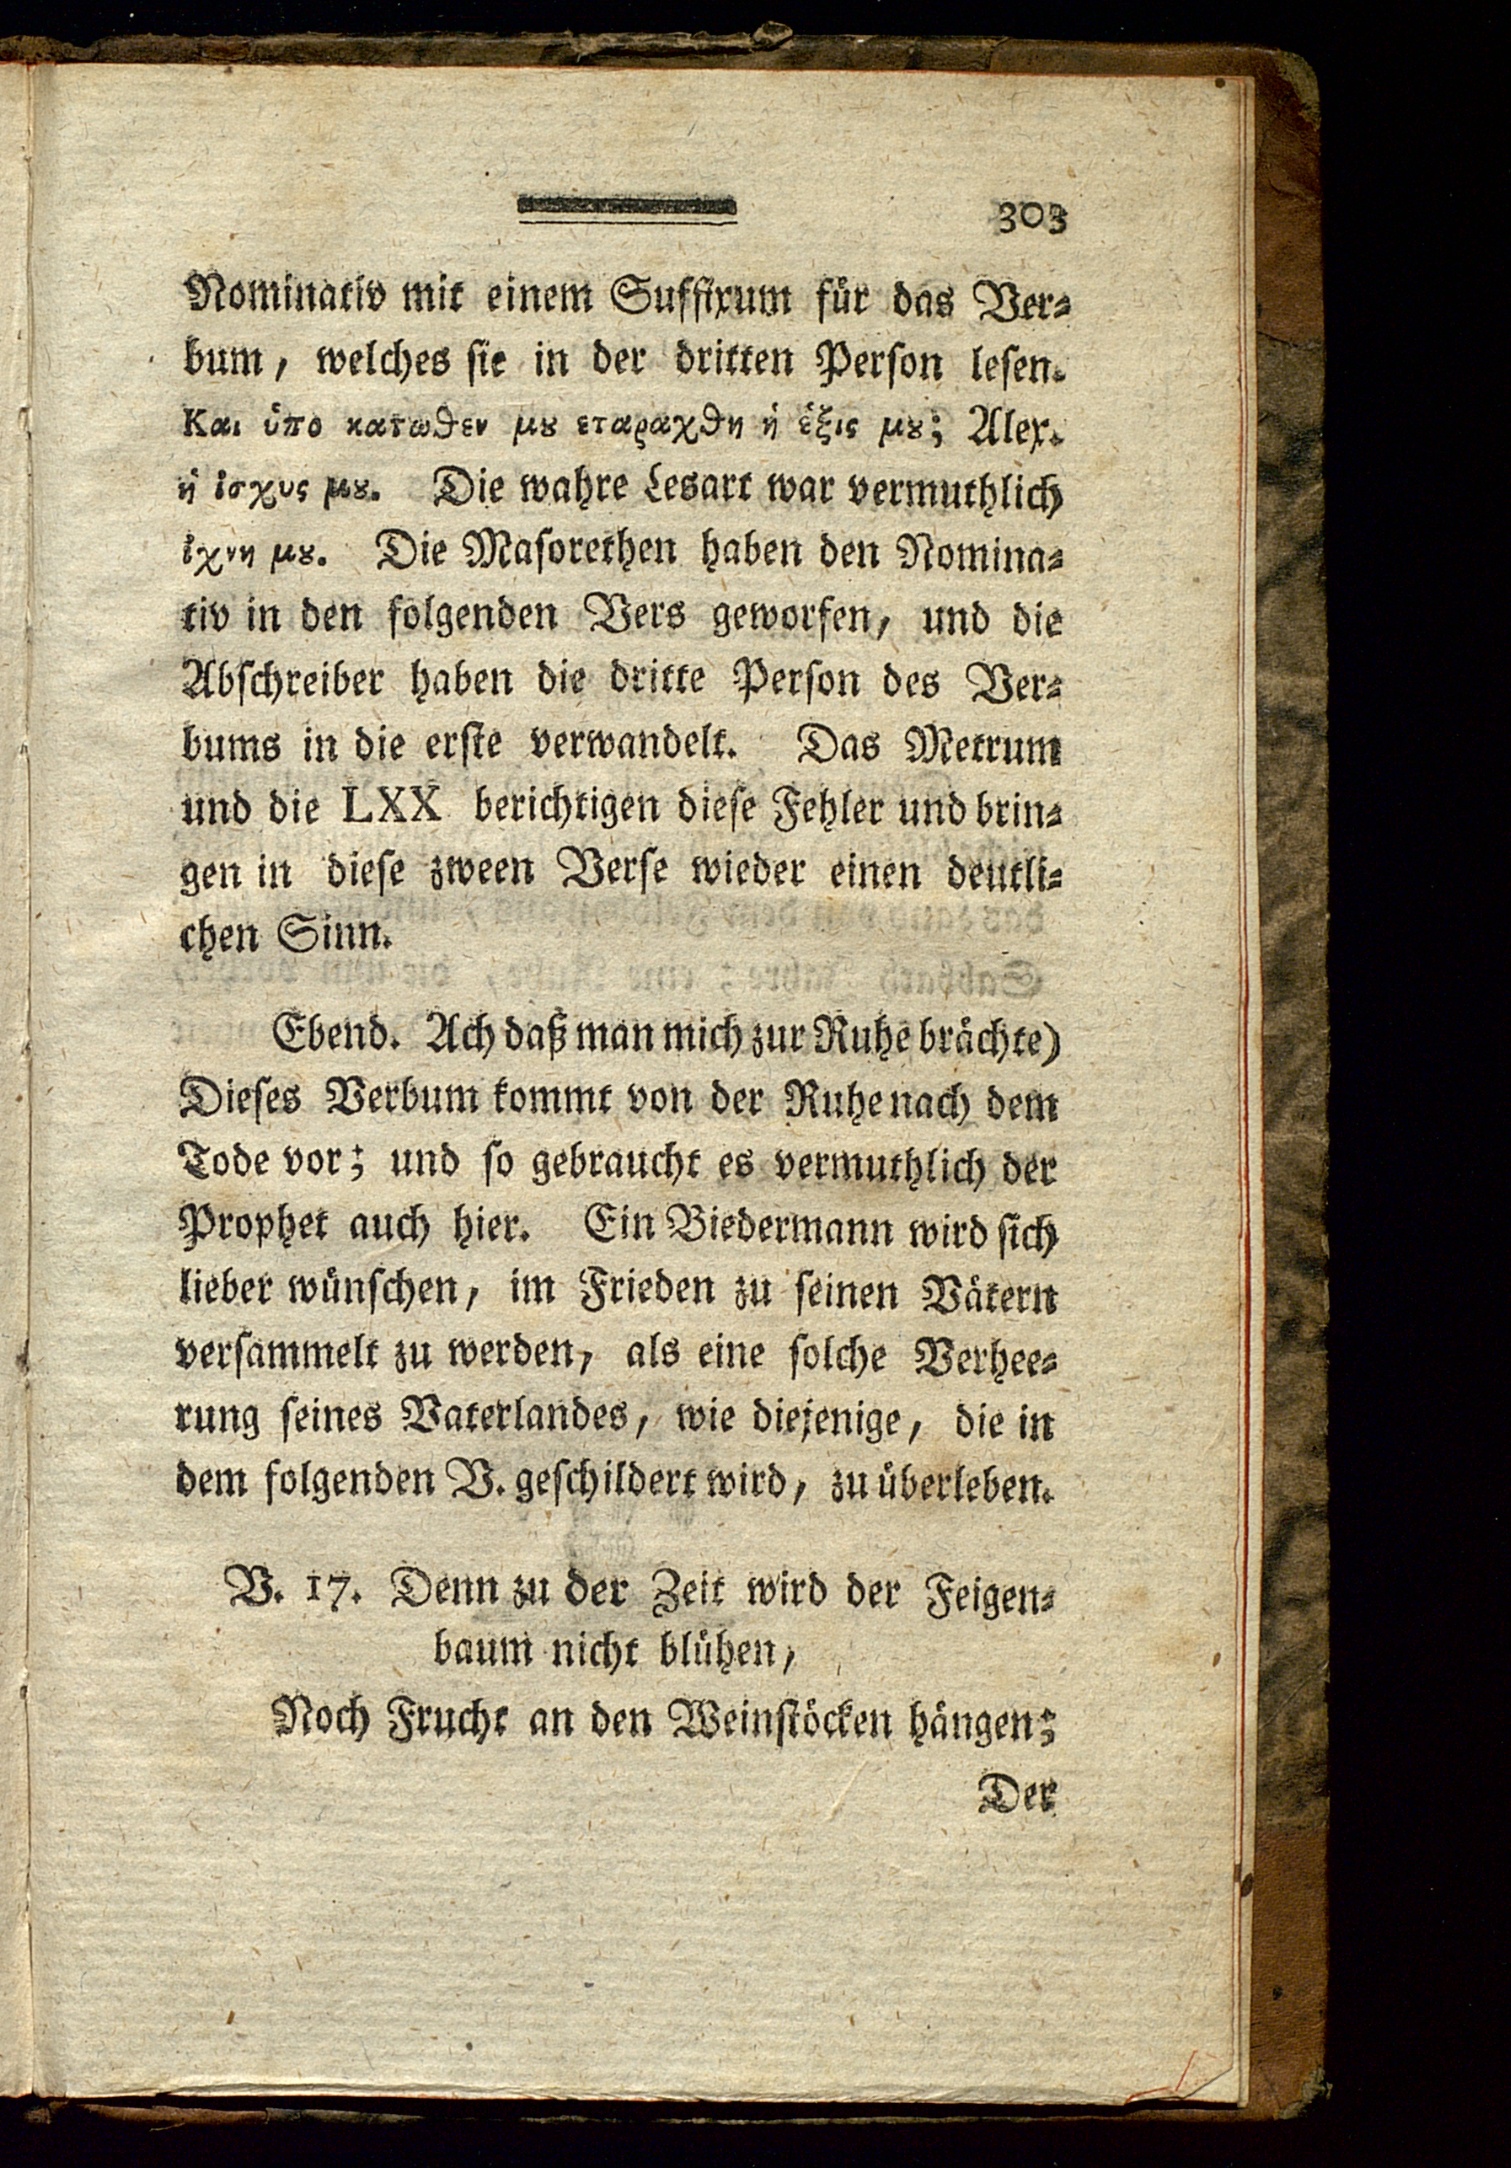 303
Nominativ mit einem Suffixum für das Ver-
bum, welches sie in der dritten Person lesen.
Και ὑπο κατωθεν μȣ εταραχθη ἡ ἑξις μȣ; Alex.
ἡ ἰσχυς μȣ. Die wahre Lesart war vermuthlich
ἰχνη μȣ. Die Masorethen haben den Nomina-
tiv in den folgenden Vers geworfen, und die
Abschreiber haben die dritte Person des Ver-
bums in die erste verwandelt. Das Metrum
und die LXX berichtigen diese Fehler und brin-
gen in diese zween Verse wieder einen deutli-
chen Sinn.
Ebend. Ach daß man mich zur Ruhe brächte)
Dieses Verbum kommt von der Ruhe nach dem
Tode vor; und so gebraucht es vermuthlich der
Prophet auch hier. Ein Biedermann wird sich
lieber wünschen, im Frieden zu seinen Vätern
versammelt zu werden, als eine solche Verhee-
rung seines Vaterlandes, wie diejenige, die in
dem folgenden V. geschildert wird, zu überleben.
V. 17. Denn zu der Zeit wird der Feigen-
baum nicht blühen,
Noch Frucht an den Weinstöcken hängen;
Der